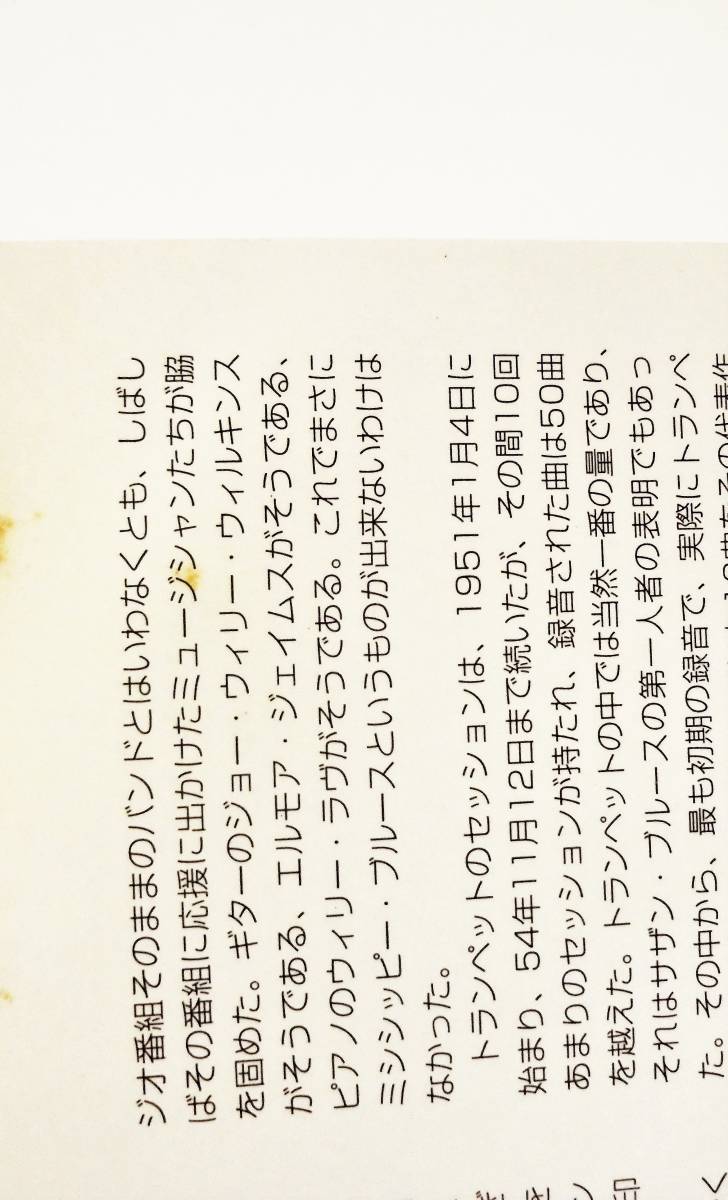 ジオ番組そのままのバンドとはいわなくとも、しばし
ばその番組に応援に出かけたミュージシャンたちが脇
を固めた。ギターのジョー・ウィリー・ウィルキンス
がそうである、エルモア・ジェイムスがそうである、
ピアノのウィリー・ラヴがそうである。これでまさに
ミシシッピー・ブルースというものが出来ないわけは
なかった。
トランペットのセッションは、1951年1月4日に
始まり、54年11月12日まで続いたが、その間10回
あまりのセッションが持たれ、録音された曲は50曲
を越えた。トランペットの中では当然一番の量であり、
それはサザン・ブルースの第一人者の表明でもあっ
た。その中から、最も初期の録音で、実際にトランペ